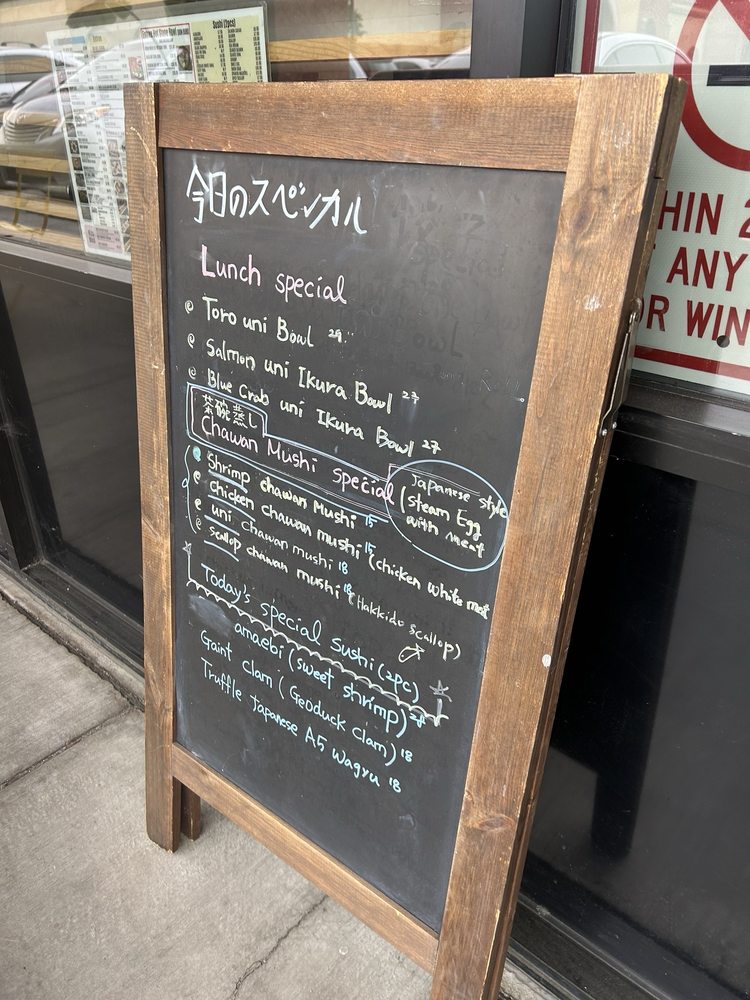 今日のスペシャル
Lunch special
Toro uni Bowl 29
Salmon uni Ikura Bowl 27
Blue Crab uni Ikura Bowl 27
茶碗蒸し
Chawan Mushi special
Japanese style
(steam Egg
with meat
Shrimp chawan Mushi 15
chicken chawan mushi 15 (chicken white meat
uni chawan mushi 18
scallop chawan mushi 18 (Hakkido scallop)
Today's special sushi (2pc)
amaebi (sweet shrimp)
Gaint clam (Geoduck clam) 18
Truffle Japanese A5 wagyu 18
Sushi (2pcs)
HIN 2
ANY
OR WIN